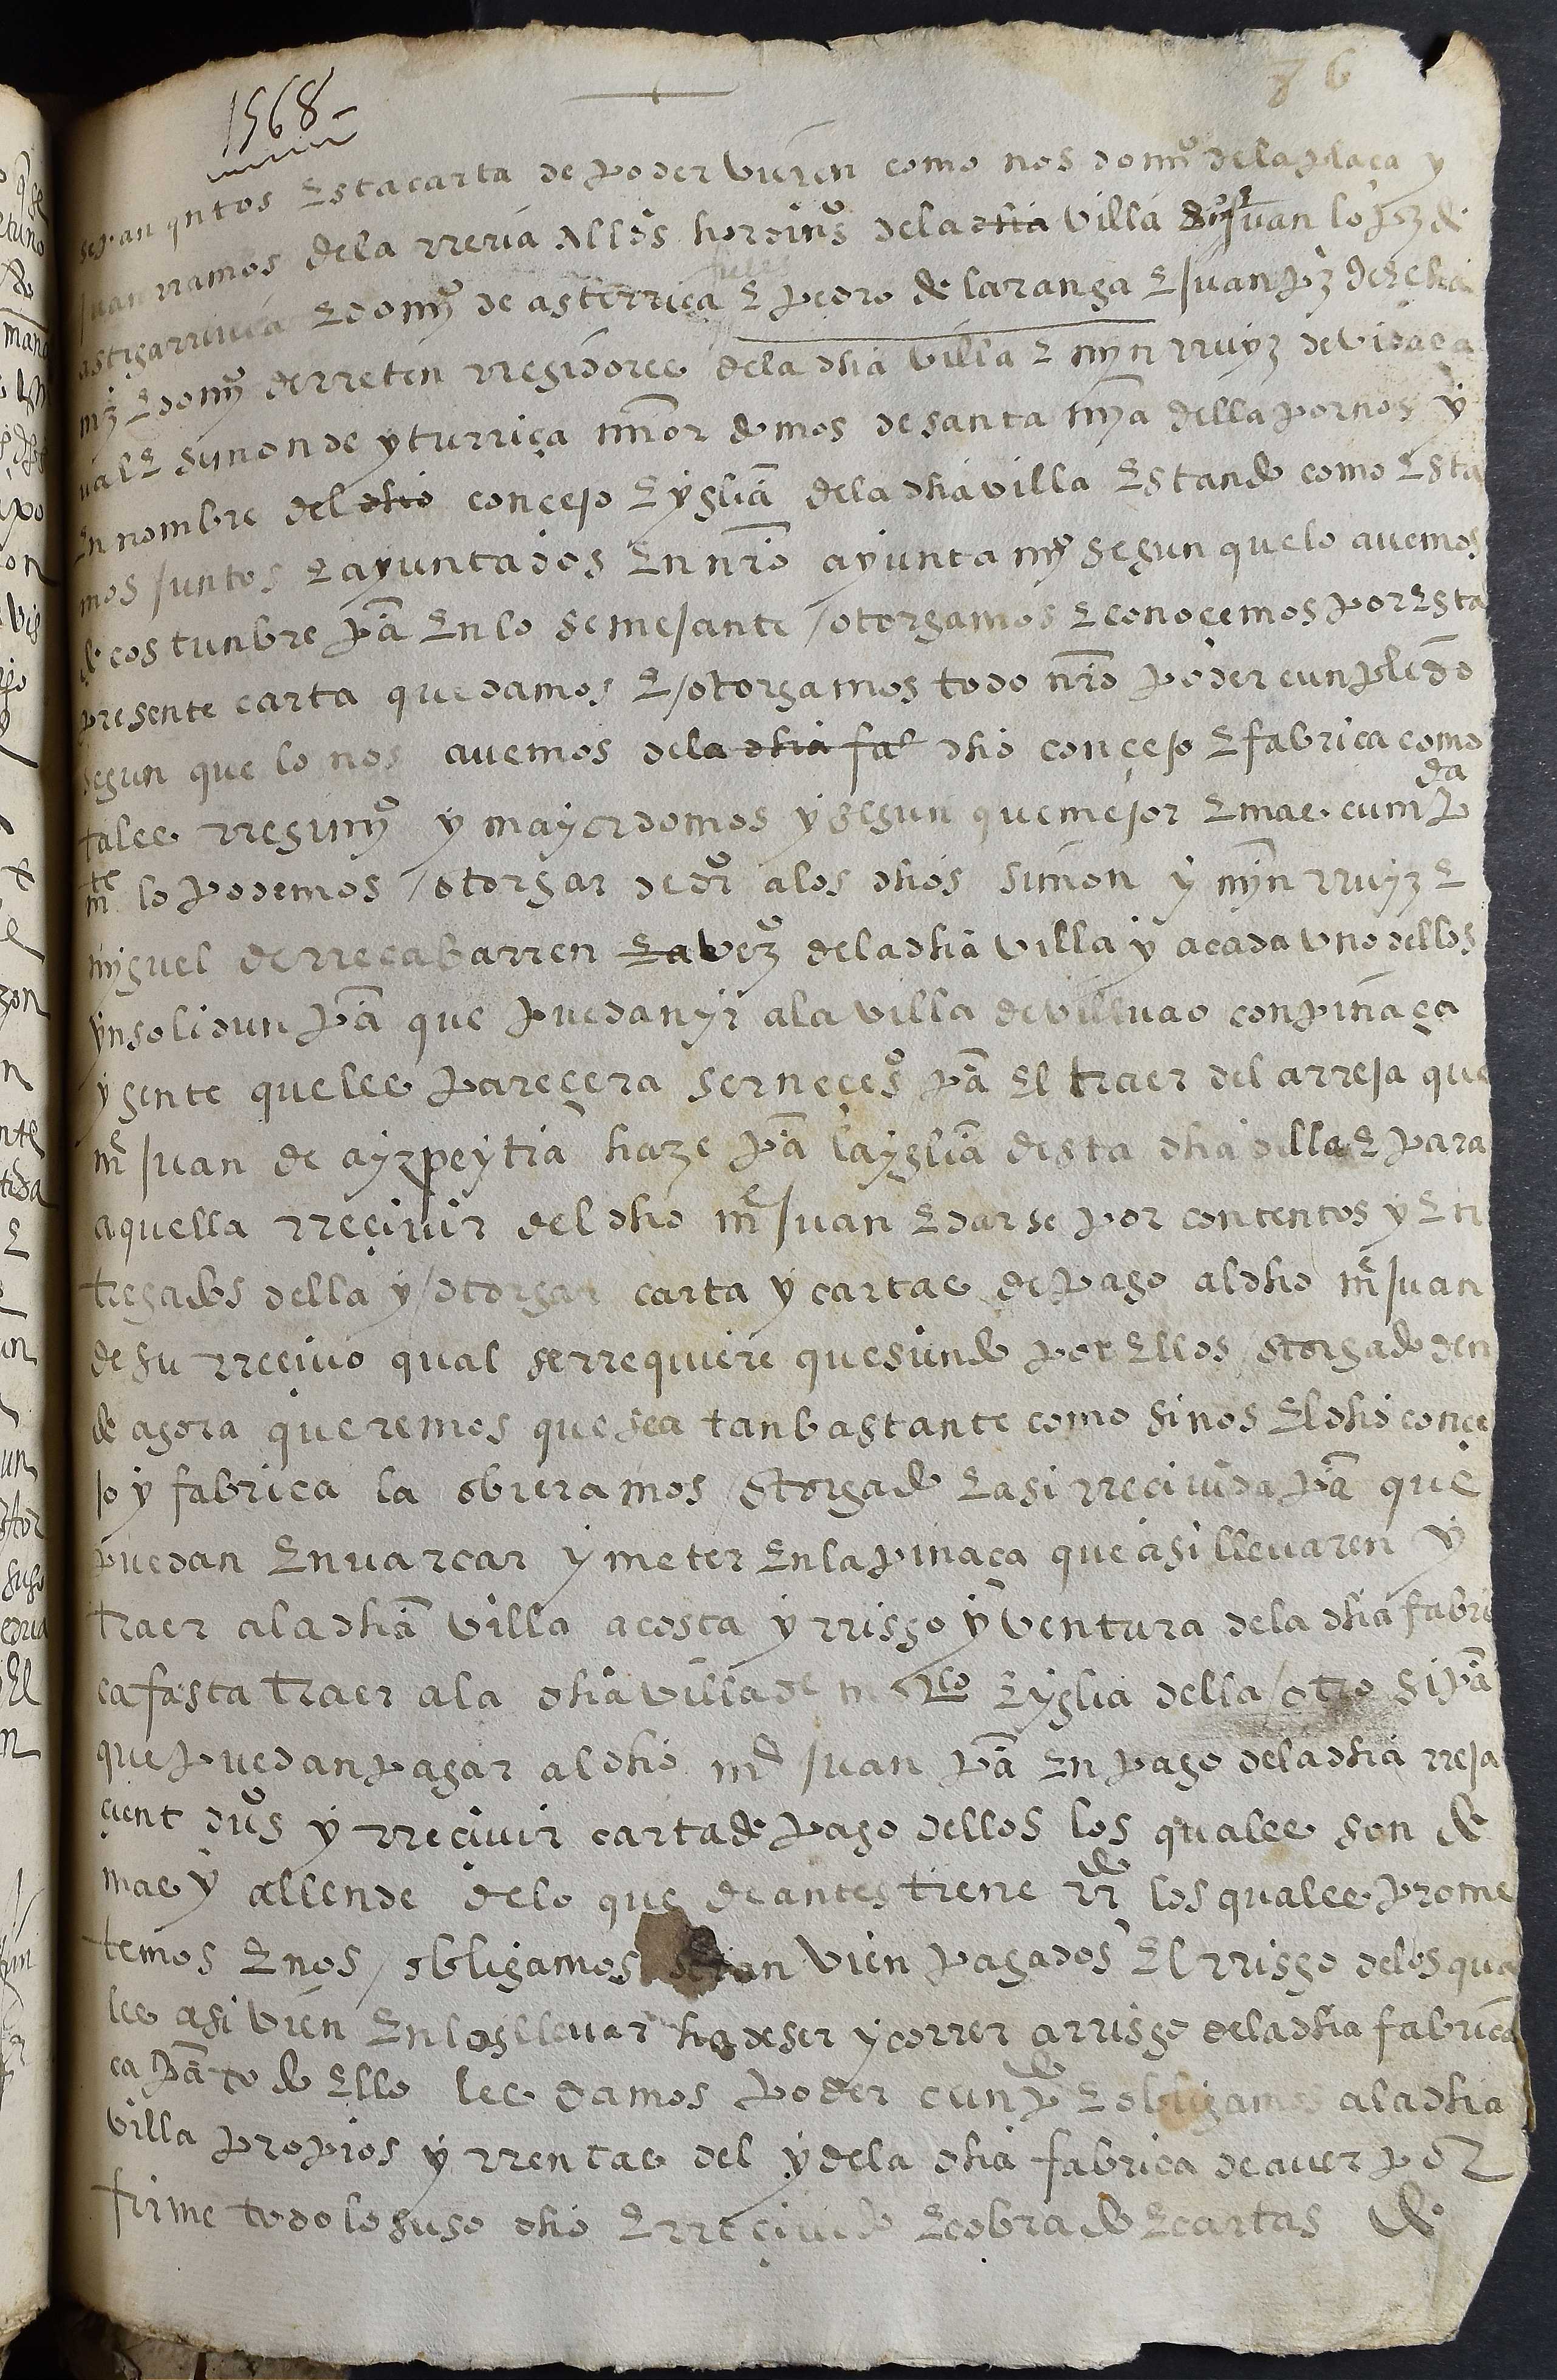 1568
sepan qntos Esta carta de poder vieren como nos domyº dela plaça y
Juan rramos dela rreria alldes hordinºs dela dha villa E Juan lopz de
astigarrivia E domyº de asterrica fieles E pedro de laranga E Juan pz
mz E domyº derreten rregidores dela dha villa E myn rruyz de
ual E simon de yturriça mmor domos de santa mya della por nos y
En nombre del dho conçejo E yglia dela dha villa Estando como Esta
mos Juntos E ayuntados En nro ayuntamyº segun que lo avemos
de costunbre pa En lo semejante / otorgamos E conoçemos por Esta
presente carta que damos E / otorgamos todo nro poder cunplido
segun que lo nos avemos dela dha fa dho conçejo E fabrica como
tales rregimyº y mayordomos y segun que mejor E mas cump da
mte lo podemos / otorgar de dr alos dhos simon y myn rruyz E
myguel de rrecabarren E a vezº dela dha villa y a cada vno dellos
ynsolidun pa que puedan yr ala villa de villvao con pinaça
y gente que les pareçera ser neçesº pa El traer del arreja que
me Juan de ayzpeytia haze pa la yglia desta dha villa E para
aquella rreçivir del dho me Juan E darse por contentos y En
tregados della y / otorgar carta y cartas de pago al dho me Juan
de su rreçivo qual se rrequiere que siendo por Ellos / otorgado den
de agora queremos que sea tan bastante como si nos El dho conçe
jo y fabrica la obieramos / otorgado E asi rreciuida pa que
puedan Envarcar y meter En la pinaça que asi llevaren y
traer ala dha villa a costa y rrisgo y ventura dela dha fabri
ca fasta traer ala dha villa de Eyglia della / otro si pa
que puedan pagar al dho me Juan pa En pago dela dha rreja
çient duºs y rreçivir carta de pago dellos los quales son de
mas y allende delo que de antes tiene rrdo los quales prome
temos E nos / obligamos seran vien pagados El rrisgo delos qua
les asi vien En los llevar ha de ser y correr a rrisgo dela dha fabrica
ca pa todo Ello les damos poder cunpdo E obligamos ala dha
villa propios y rrentas del y dela dha fabrica de aver por
firme todo lo suso dho E rreçiuido E cobrado E cartas de